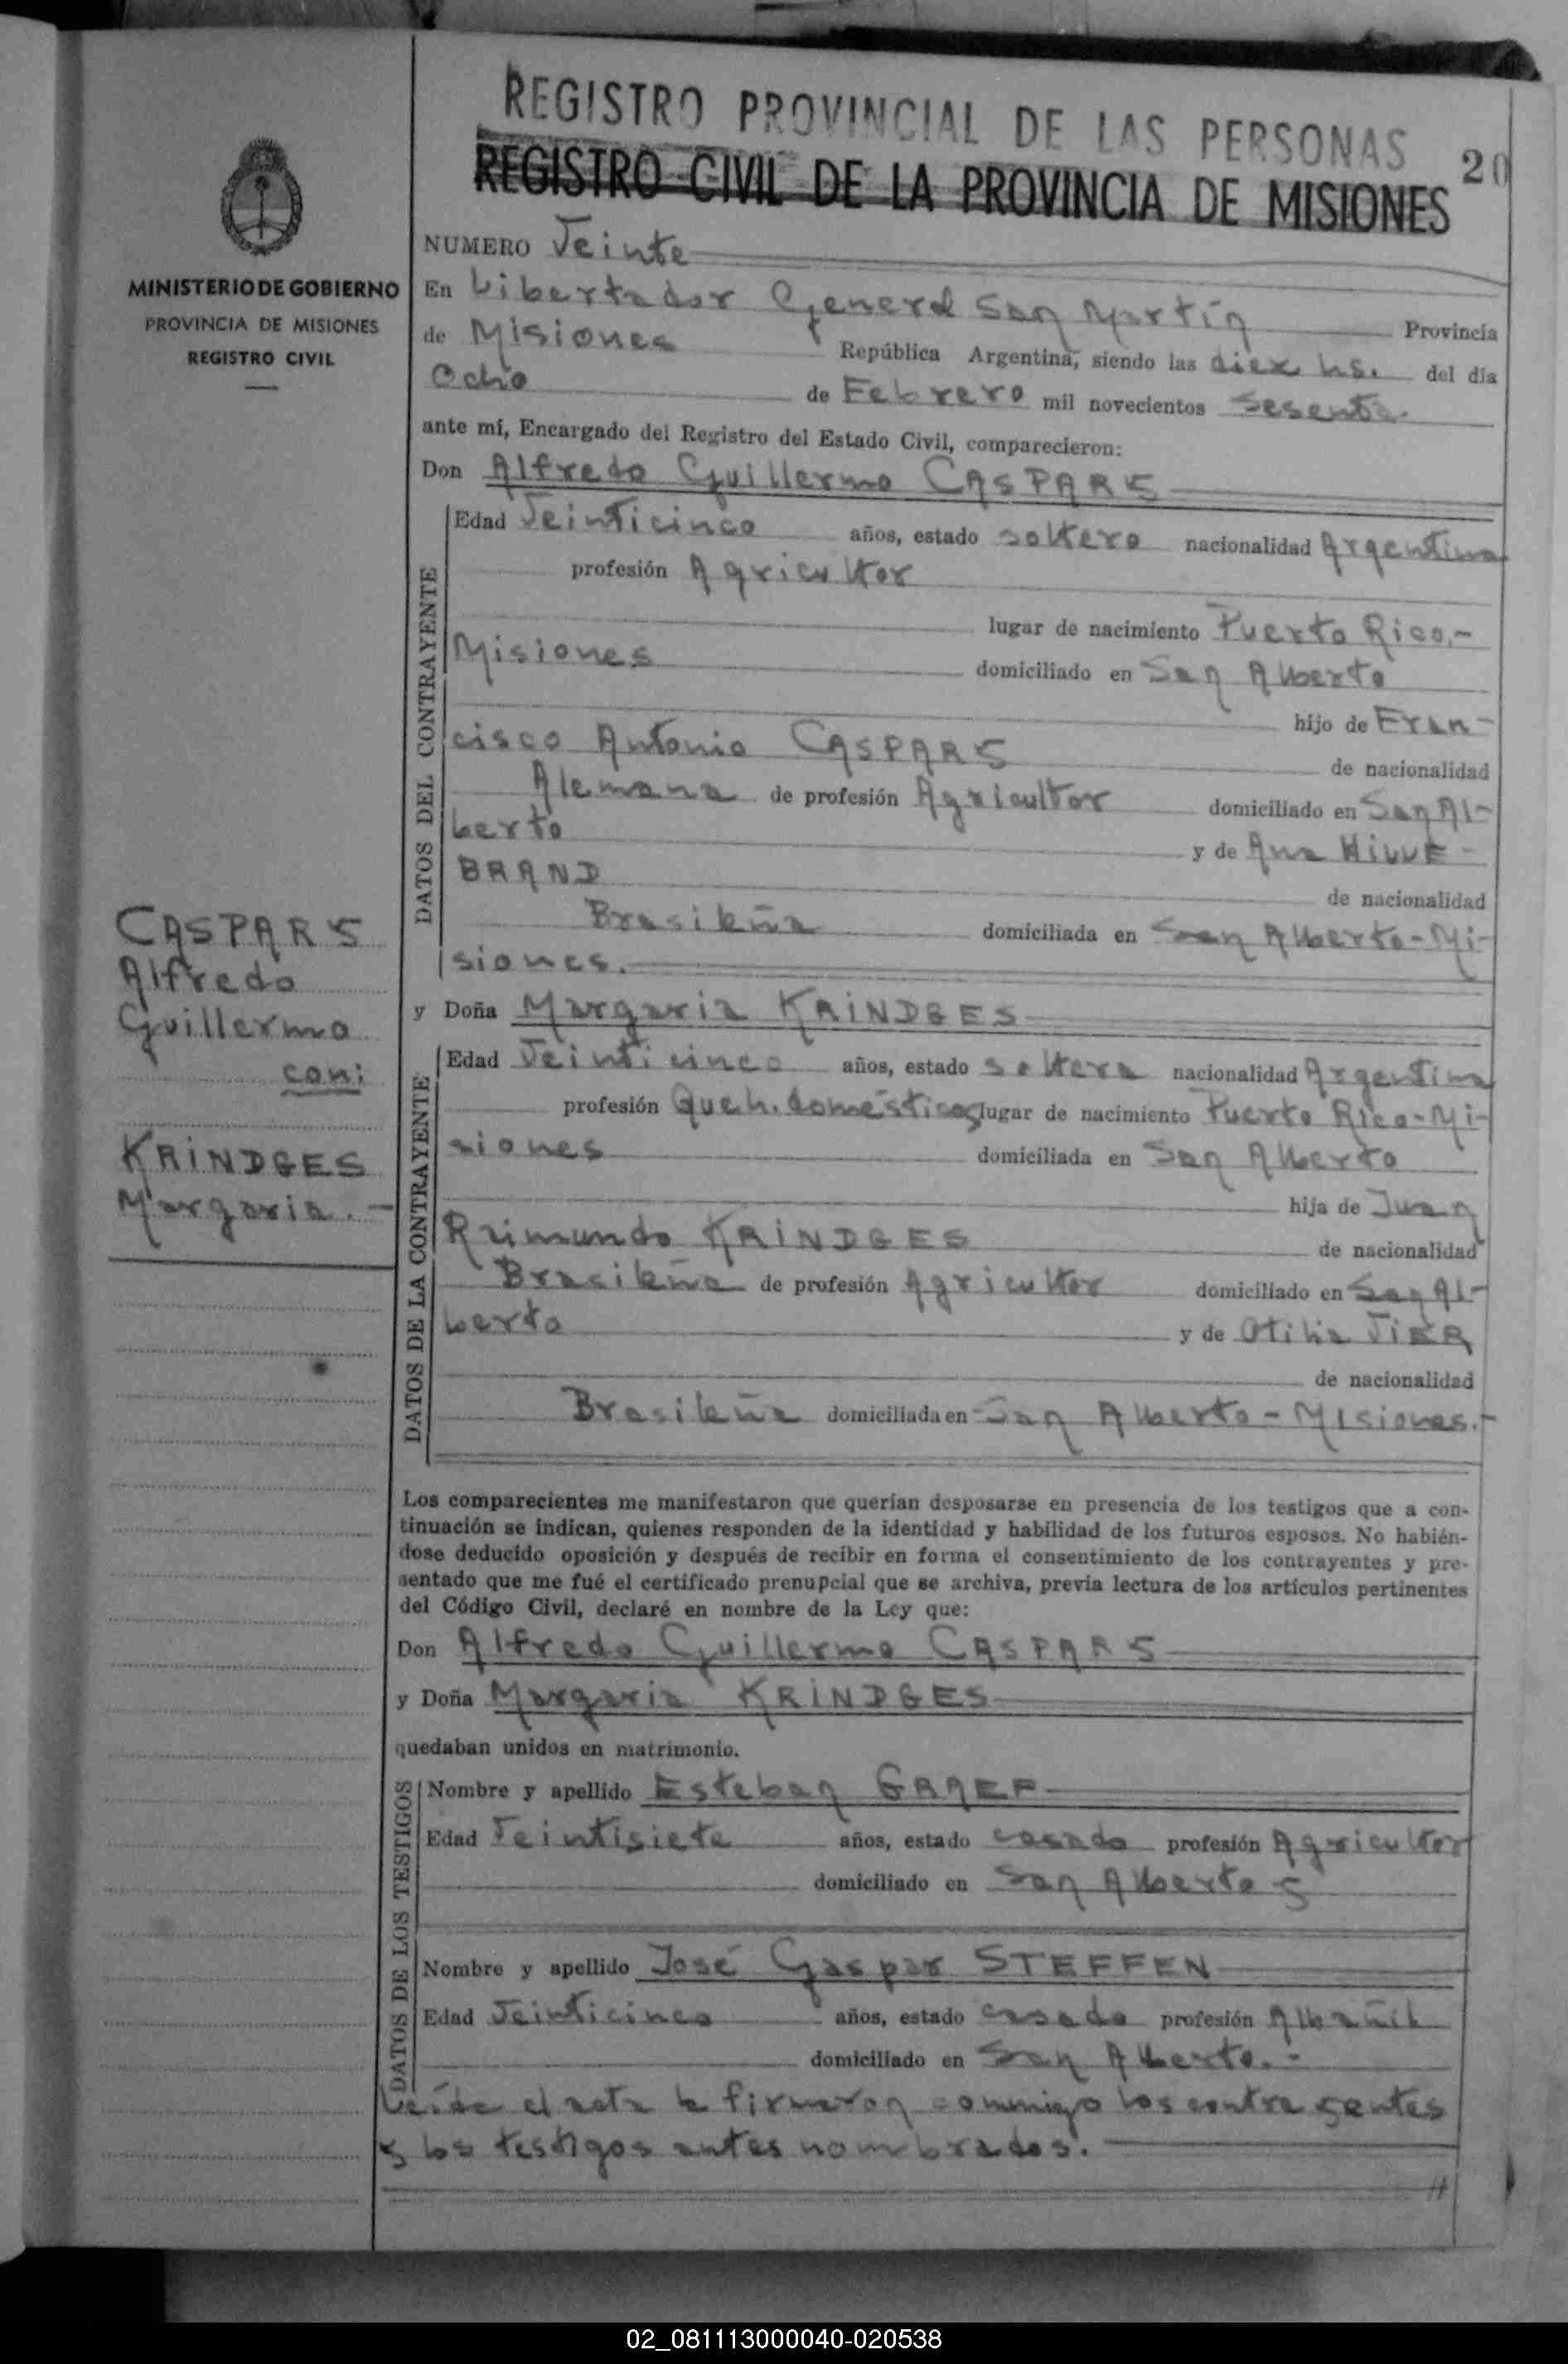 REGISTRO PROVINCIAL DE LAS PERSONAS
REGISTRO CIVIL DE LA PROVINCIA DE MISIONES
20
MINISTERIO DE GOBIERNO
PROVINCIA DE MISIONES
REGISTRO CIVIL
NUMERO Veinte
En Libertador General San Martín Provincia
de Misiones República Argentina, siendo las diez hs. del día
Ocho de Febrero mil novecientos sesenta.
ante mí, Encargado del Registro del Estado Civil, comparecieron:
Don Alfredo Guillermo CASPARS
DATOS DEL CONTRAYENTE
Edad Veinticinco años, estado soltero nacionalidad Argentina
profesión Agricultor
lugar de nacimiento Puerto Rico.-
Misiones domiciliado en San Alberto
hijo de Fran-
cisco Antonio CASPARS de nacionalidad
Alemana de profesión Agricultor domiciliado en San Al-
berto y de Ana HILLE-
BRAND de nacionalidad
Brasileña domiciliada en San Alberto-Mi-
siones.
CASPARS
Alfredo
Guillermo
con:
KRINDGES
Margaria.-
y Doña Margaria KRINDGES
DATOS DE LA CONTRAYENTE
Edad Veinticinco años, estado soltera nacionalidad Argentina
profesión Queh. domésticos lugar de nacimiento Puerto Rico-Mi-
siones domiciliada en San Alberto
hija de Juan
Raimundo KRINDGES de nacionalidad
Brasileña de profesión Agricultor domiciliado en San Al-
berto y de Otilia VIER
de nacionalidad
Brasileña domiciliada en San Alberto-Misiones.-
Los comparecientes me manifestaron que querían desposarse en presencia de los testigos que a con-
tinuación se indican, quienes responden de la identidad y habilidad de los futuros esposos. No habién-
dose deducido oposición y después de recibir en forma el consentimiento de los contrayentes y pre-
sentado que me fué el certificado prenupcial que se archiva, previa lectura de los artículos pertinentes
del Código Civil, declaré en nombre de la Ley que:
Don Alfredo Guillermo CASPARS
y Doña Margaria KRINDGES
quedaban unidos en matrimonio.
DATOS DE LOS TESTIGOS
Nombre y apellido Esteban GRAEF
Edad Veintisiete años, estado casado profesión Agricultor
domiciliado en San Alberto y
Nombre y apellido José Gaspar STEFFEN
Edad Veinticinco años, estado casado profesión Albañil
domiciliado en San Alberto.-
Leída el acta la firmaron conmigo los contrayentes
y los testigos antes nombrados.
02_081113000040-020538